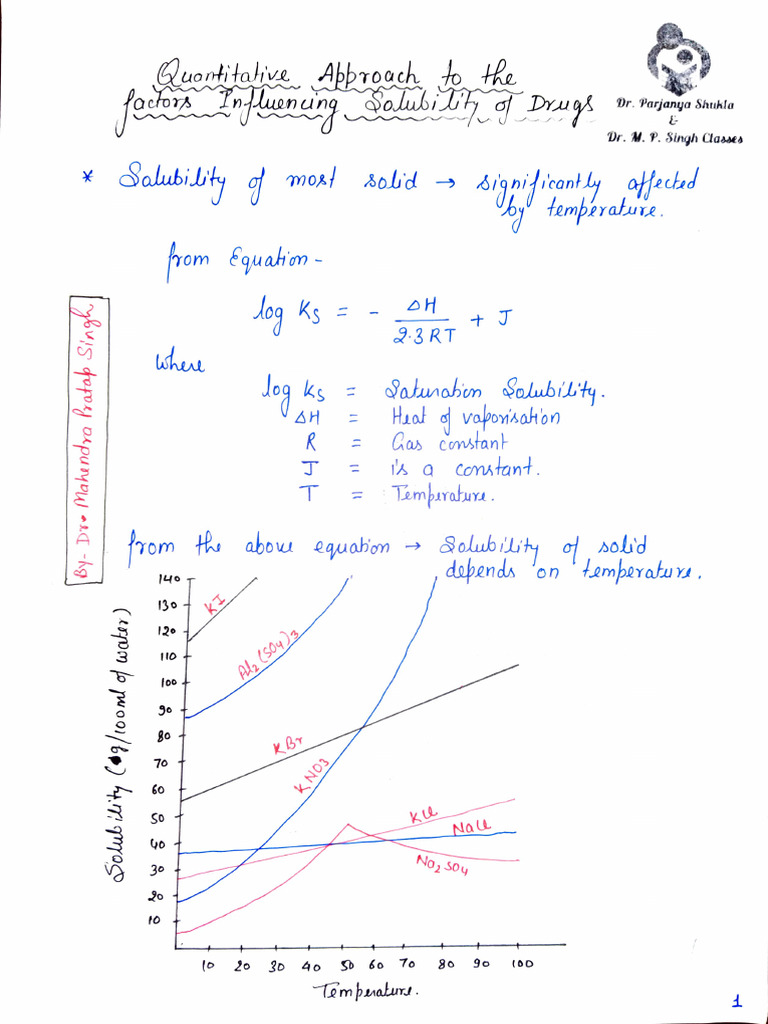 Quantitative Approach to the
factors Influencing Solubility of Drugs
Dr. Parjanya Shukla
&
Dr. M. P. Singh Classes
* Solubility of most solid → significantly affected
by temperature.
from Equation -
log Ks = - ΔH / 2.3 RT + J
where
log Ks = Saturation Solubility.
ΔH = Heat of vaporisation
R = Gas constant
J = is a constant.
T = Temperature.
By- Dr. Mahendra Pratap Singh
from the above equation → Solubility of solid
depends on temperature.
Solubility (g/100ml of water)
140
130
120
110
100
90
80
70
60
50
40
30
20
10
KI
Al2(SO4)3
KBr
KNO3
KCl
NaCl
No2SO4
10 20 30 40 50 60 70 80 90 100
Temperature.
1